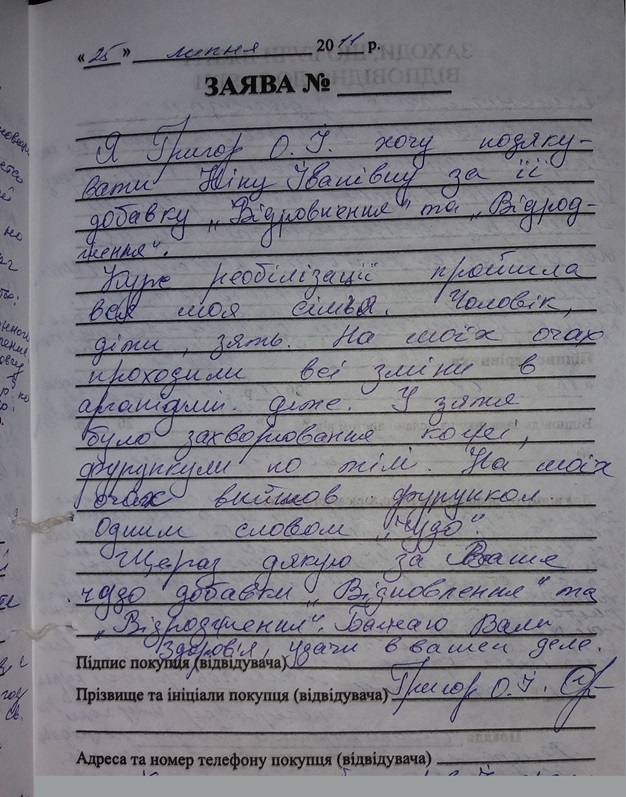 « 25 » липня 2011 р.
ЗАЯВА №
Я Григор О. І. хочу подяку-
вати Ніну Іванівну за її
добавку „Відровнення" та „Відрод-
ження".
Курс реобілізації пройшла
вся моя сім'я. Чоловік,
діти, зять. На моїх очах
проходили всі зміни в
діже. У зятя
було захворювання кожі,
фурункули по тілі. На моїх
очах вийшов фурункол
Одним словом „Чудо".
Щераз дякую за Ваше
чудо добавки „Відновлення" та
„Візродження". Бажаю Вам
Здоров'я, удачи в вашем деле.
Підпис покупця (відвідувача)
Прізвище та ініціали покупця (відвідувача) Григор О. І.
Адреса та номер телефону покупця (відвідувача)